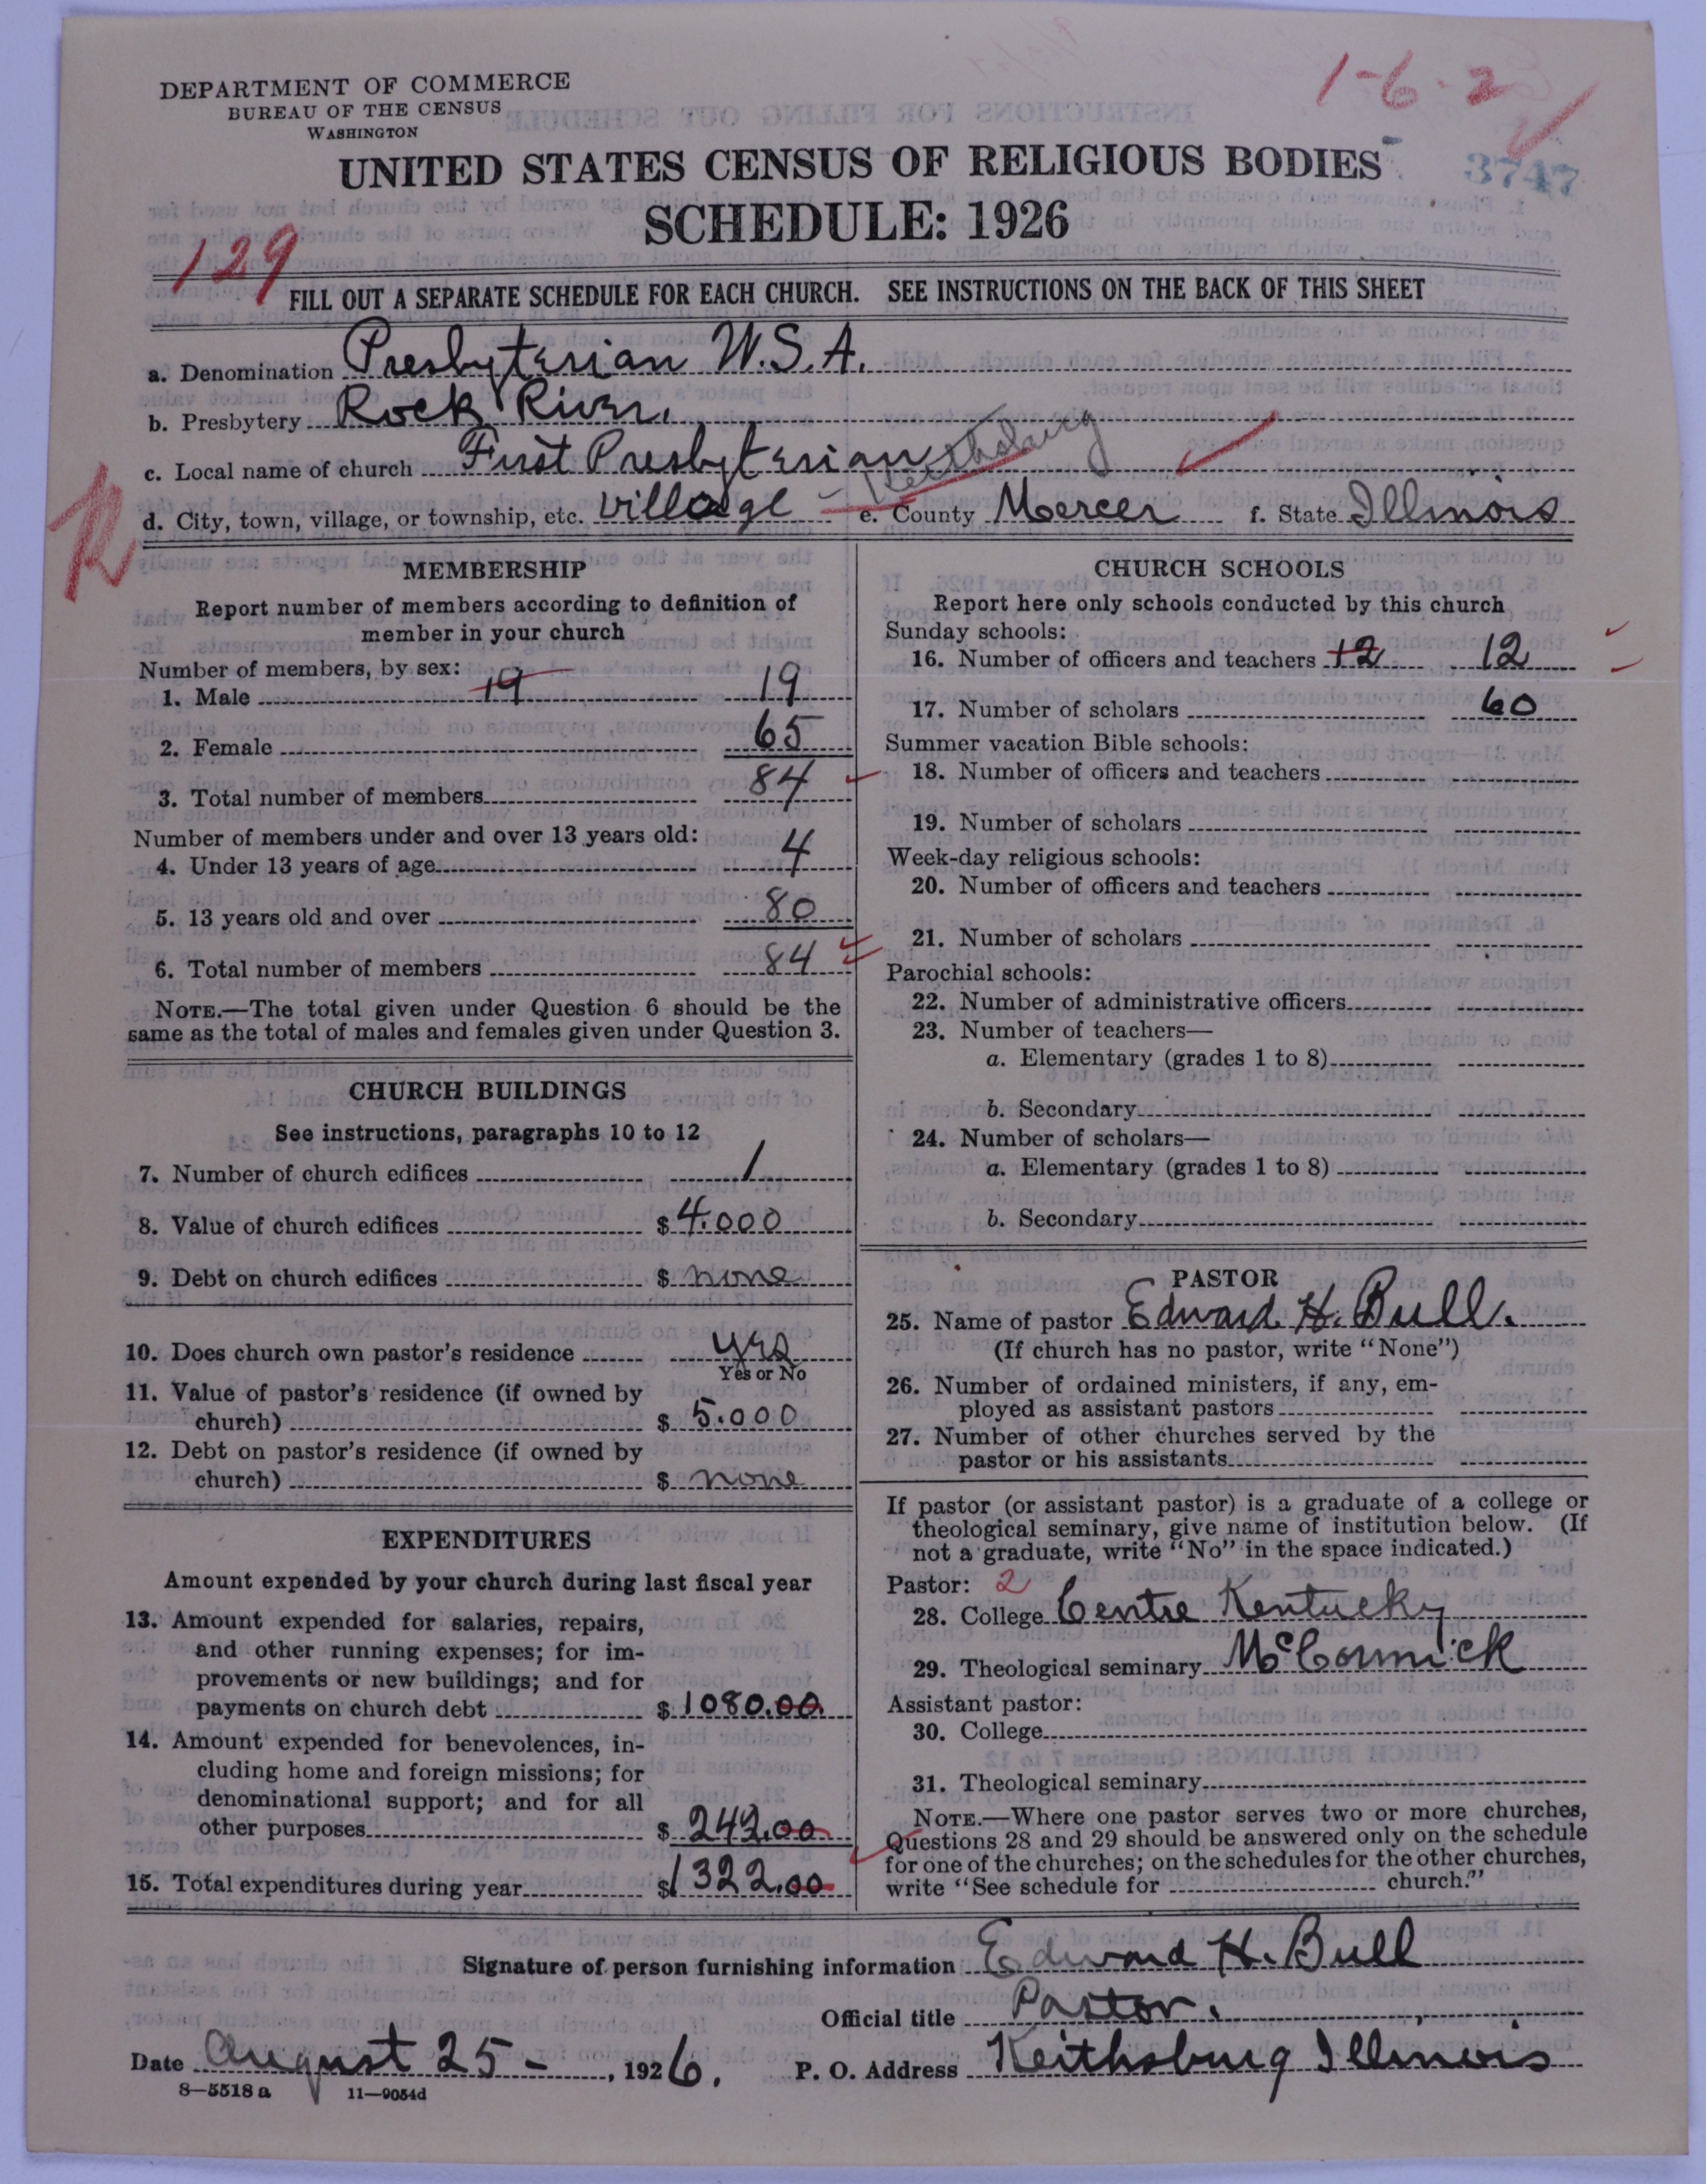 1-6-2
DEPARTMENT OF COMMERCE
BUREAU OF THE CENSUS
WASHINGTON
UNITED STATES CENSUS OF RELIGIOUS BODIES
3747
SCHEDULE: 1926
129
FILL OUT A SEPARATE SCHEDULE FOR EACH CHURCH. SEE INSTRUCTIONS ON THE BACK OF THIS SHEET
a. Denomination Presbyterian U.S.A.
b. Presbytery Rock River.
c. Local name of church First Presbyterian
Keithsburg
d. City, town, village, or township, etc. village e. County Mercer f. State Illinois
MEMBERSHIP
Report number of members according to definition of
member in your church
Number of members, by sex:
1. Male 19 19
2. Female 65
3. Total number of members 84
Number of members under and over 13 years old:
4. Under 13 years of age 4
5. 13 years old and over 80
6. Total number of members 84
NOTE.—The total given under Question 6 should be the
same as the total of males and females given under Question 3.
CHURCH BUILDINGS
See instructions, paragraphs 10 to 12
7. Number of church edifices 1
8. Value of church edifices $ 4.000
9. Debt on church edifices $ none
10. Does church own pastor's residence yes
Yes or No
11. Value of pastor's residence (if owned by
church) $ 5.000
12. Debt on pastor's residence (if owned by
church) $ none
EXPENDITURES
Amount expended by your church during last fiscal year
13. Amount expended for salaries, repairs,
and other running expenses; for im-
provements or new buildings; and for
payments on church debt $ 1080.00
14. Amount expended for benevolences, in-
cluding home and foreign missions; for
denominational support; and for all
other purposes $ 242.00
15. Total expenditures during year $ 1322.00
CHURCH SCHOOLS
Report here only schools conducted by this church
Sunday schools:
16. Number of officers and teachers 12 12
17. Number of scholars 60
Summer vacation Bible schools:
18. Number of officers and teachers
19. Number of scholars
Week-day religious schools:
20. Number of officers and teachers
21. Number of scholars
Parochial schools:
22. Number of administrative officers
23. Number of teachers—
a. Elementary (grades 1 to 8)
b. Secondary
24. Number of scholars—
a. Elementary (grades 1 to 8)
b. Secondary
PASTOR
25. Name of pastor Edward H. Bull.
(If church has no pastor, write "None")
26. Number of ordained ministers, if any, em-
ployed as assistant pastors
27. Number of other churches served by the
pastor or his assistants
If pastor (or assistant pastor) is a graduate of a college or
theological seminary, give name of institution below. (If
not a graduate, write "No" in the space indicated.)
Pastor: 2
28. College Centre Kentucky
29. Theological seminary McCormick
Assistant pastor:
30. College
31. Theological seminary
NOTE.—Where one pastor serves two or more churches,
Questions 28 and 29 should be answered only on the schedule
for one of the churches; on the schedules for the other churches,
write "See schedule for church."
Signature of person furnishing information Edward H. Bull
Official title Pastor.
Date August 25 - , 1926. P. O. Address Keithsburg Illinois
8—5518 a 11—9054d